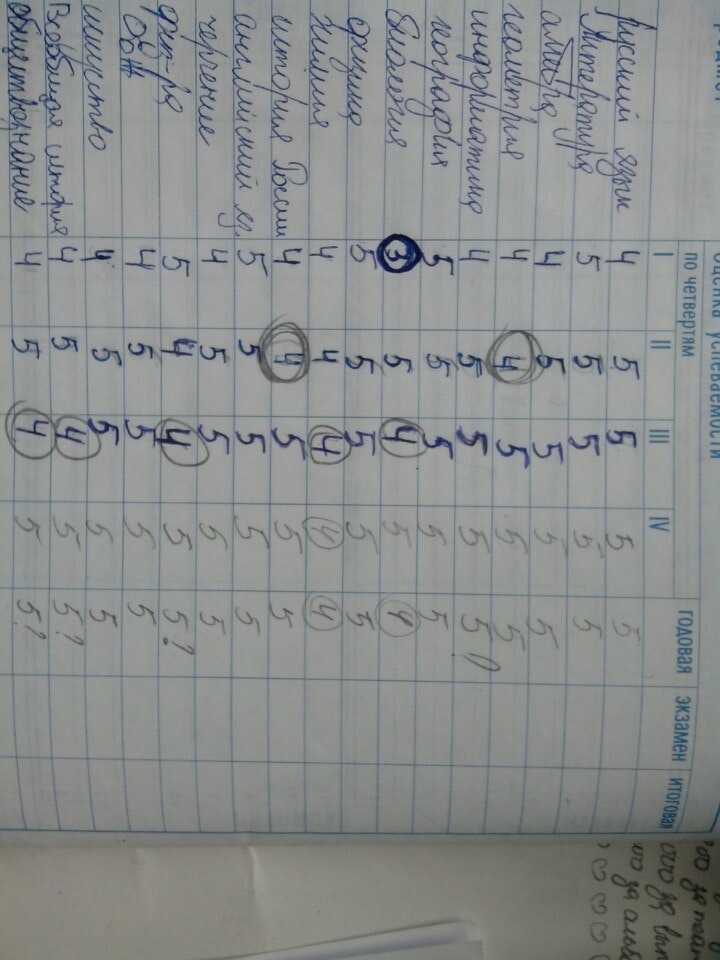 оценка успеваемости
по четвертям годовая экзамен итоговая
I II III IV
русский язык 4 5 5 5 5
литература 5 5 5 5 5
алгебра 4 5 5 5 5
геометрия 4 4 5 5 5
информатика 4 5 5 5 5
география 5 5 5 5 5
биология 3 5 4 5 4
физика 5 5 5 5 5
химия 4 4 4 4 4
история России 4 4 5 5 5
английский яз. 5 5 5 5 5
черчение 4 5 5 5 5
физ-ра 5 4 4 5 5?
ОБЖ 4 5 5 5 5
искусство 4 5 5 5 5
Всеобщая история 4 5 4 5 5?
обществознание 4 5 4 5 5?